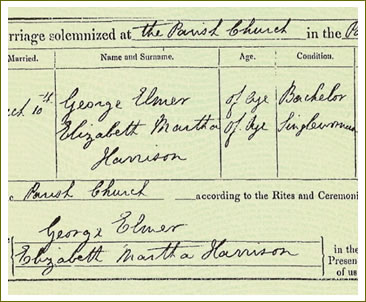 rriage solemnized at the Parish Church in the Pa
Married. Name and Surname. Age. Condition.
ch 10th George Elmer of Age Bachelor
Elizabeth Martha of Age Singlewoman
Harrison
e Parish Church according to the Rites and Ceremoni
George Elmer in the
Elizabeth Martha Harrison Presen
of us